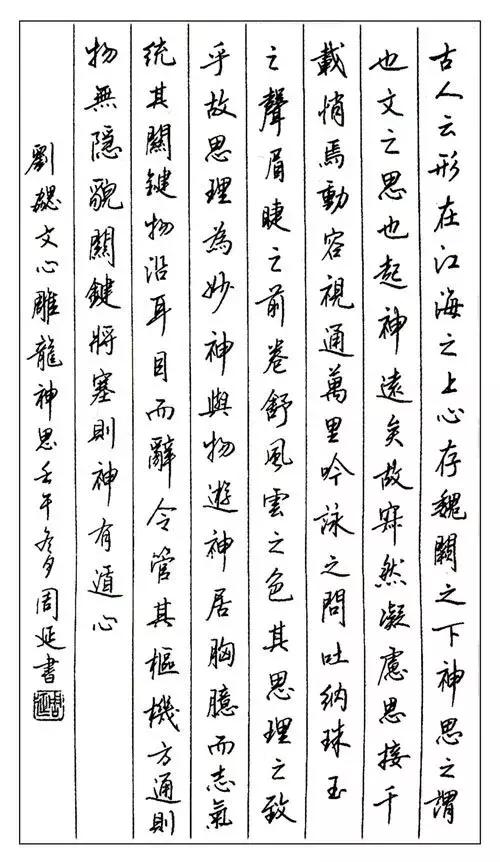 古人云形在江海之上心存魏闕之下神思之謂
也文之思也起神遠矣故寂然凝慮思接千
載悄焉動容視通萬里吟詠之間吐納珠玉
之聲眉睫之前卷舒風雲之色其思理之致
乎故思理為妙神與物遊神居胸臆而志氣
統其關鍵物沿耳目而辭令管其樞機方通則
物無隱貌關鍵將塞則神有遁心
劉勰文心雕龍神思壬午冬月周延書